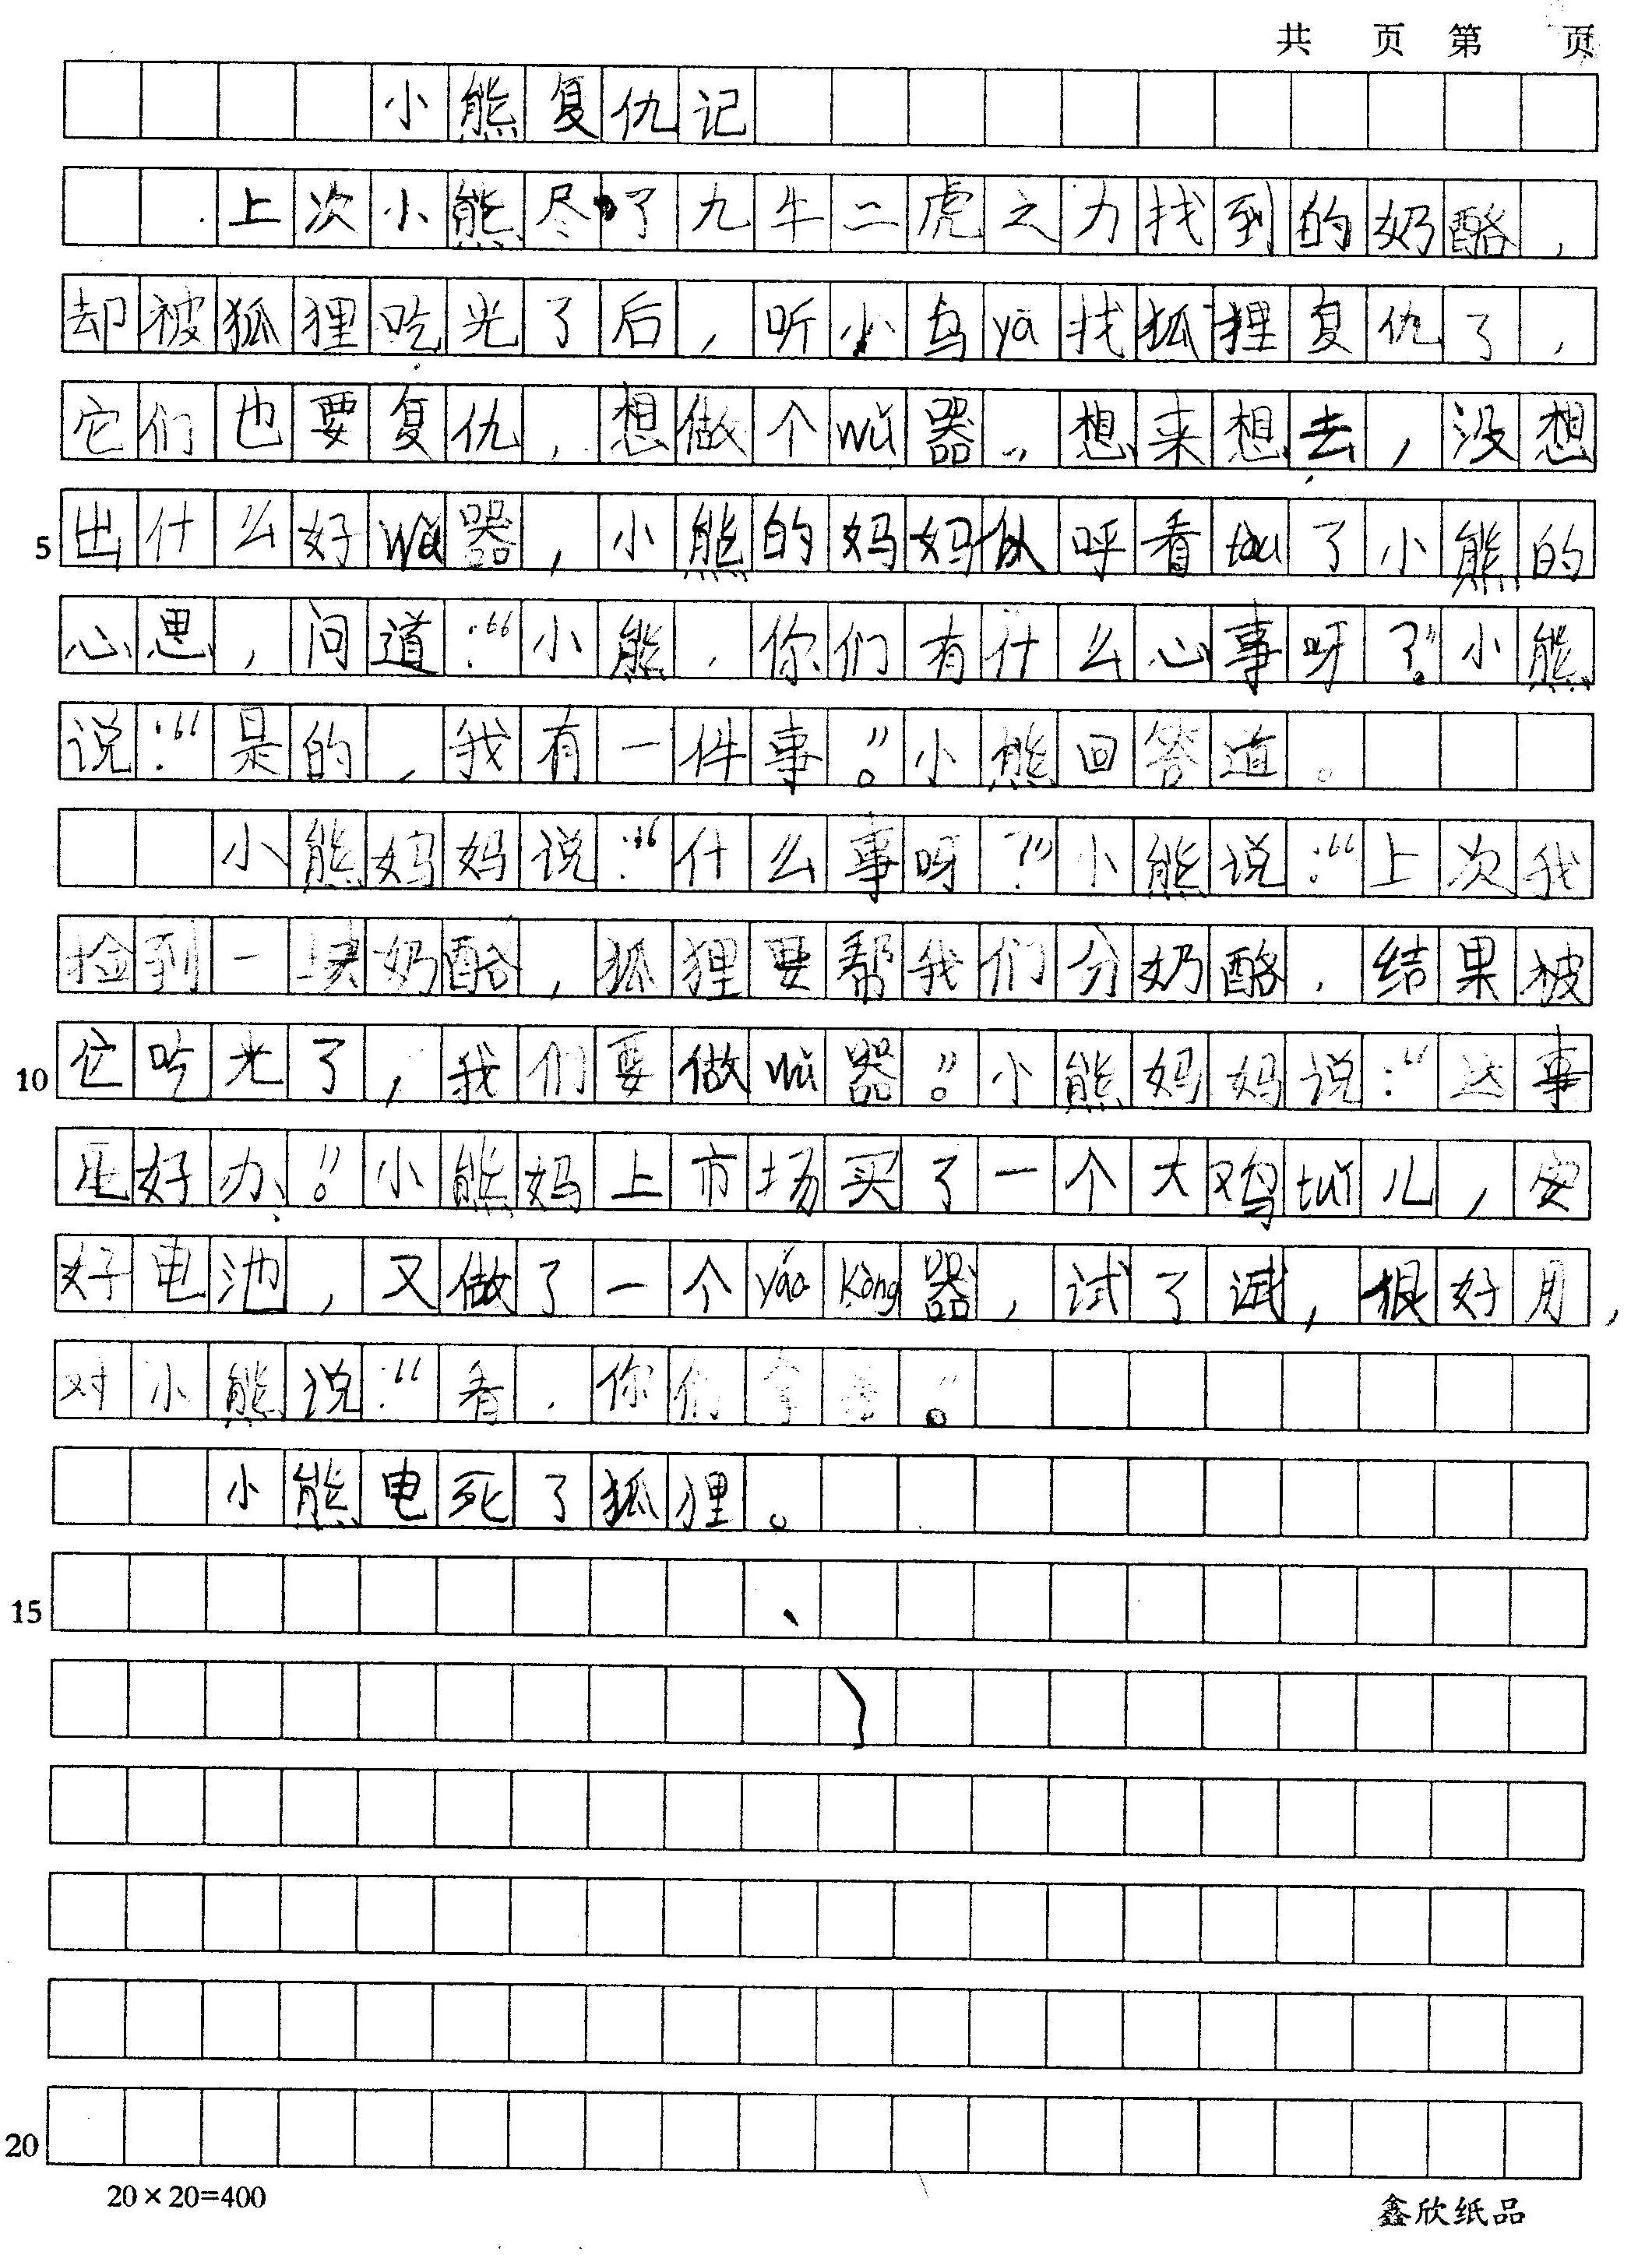 共 页 第 页
小熊复仇记
上次小熊尽了九牛二虎之力找到的奶酪，
却被狐狸吃光了后，听小鸟yā找狐狸复仇了，
它们也要复仇，想做个wǔ器。想来想去，没想
5 出什么好wǔ器，小熊的妈妈似呼看tòu了小熊的
心思，问道：“小熊，你们有什么心事呀？”小熊
说：“是的，我有一件事。”小熊回答道。
小熊妈妈说：“什么事呀？”小熊说：“上次我
捡到一块奶酪，狐狸要帮我们分奶酪，结果被
10 它吃光了，我们要做wǔ器。”小熊妈妈说：“这事
好办。”小熊妈上市场买了一个大鸡tuǐ儿，安
好电池，又做了一个yáo kòng器，试了试，很好用，
对小熊说：“看，你们拿去。”
小熊电死了狐狸。
15
20
20×20=400
鑫欣纸品